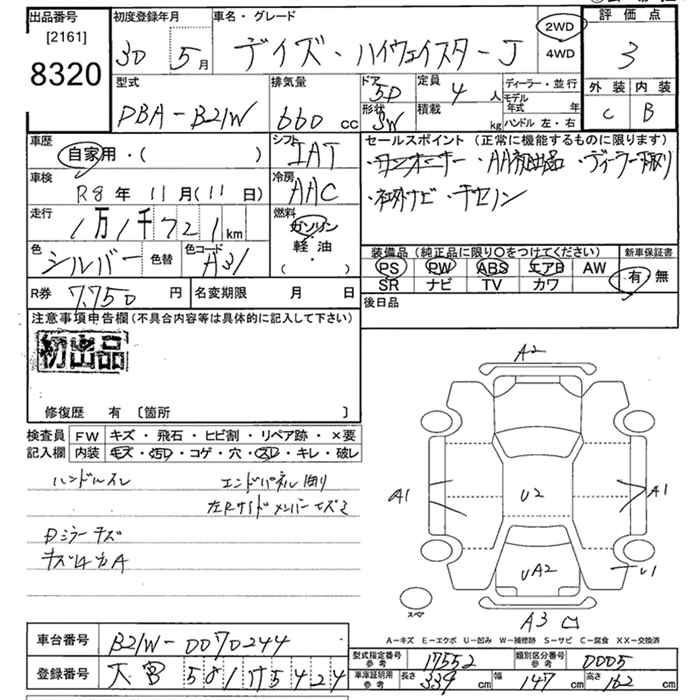 出品番号
[2161]
8320
初度登録年月
30 5月
車名・グレード
デイズ・ハイウェイスターJ
2WD
4WD
評価点
3
外装 内装
C B
型式
DBA-B21W
排気量
660 cc
ドア
5D
形状
5W
定員
4人
積載
kg
ディーラー・並行
モデル年式 年
ハンドル 左・右
車歴
自家用・( )
シフト
IAT
車検
R8年11月(11日)
冷房
AAC
走行
1万1千721km
燃料
ガソリン
軽油
( )
色
シルバー
色替
色コード
R券
7.750円
名変期限 月 日
セールスポイント (正常に機能するものに限ります)
・ワンオーナー ・AA初出品 ・ディーラー下取り
・社外ナビ ・チセノン
装備品 (純正品に限り〇をつけてください)
PS PW ABS エアB AW
SR ナビ TV カワ
新車保証書
有 無
後日品
注意事項申告欄(不具合内容等は具体的に記入して下さい)
初出品
修復歴 有 〔箇所 〕
検査員記入欄
FW キズ・飛石・ヒビ割・リペア跡・×要
内装 キズ・汚レ・コゲ・穴・スレ・キレ・破レ
ハンドルスレ
エンドパネル
左Rサイドメンバーキズミ
Dミラーキズ
A2
A1
U2
A1
UA2
U1
スペア
A3
A-キズ E-エクボ U-凹み W-補修跡 S-サビ C-腐食 XX-交換済
車台番号
B21W-0070244
登録番号
大宮 581 5424
型式指定番号
参考
17552
類別区分番号
参考
0005
車庫証明用
参考
長さ 339 cm
幅 147 cm
高さ 162 cm